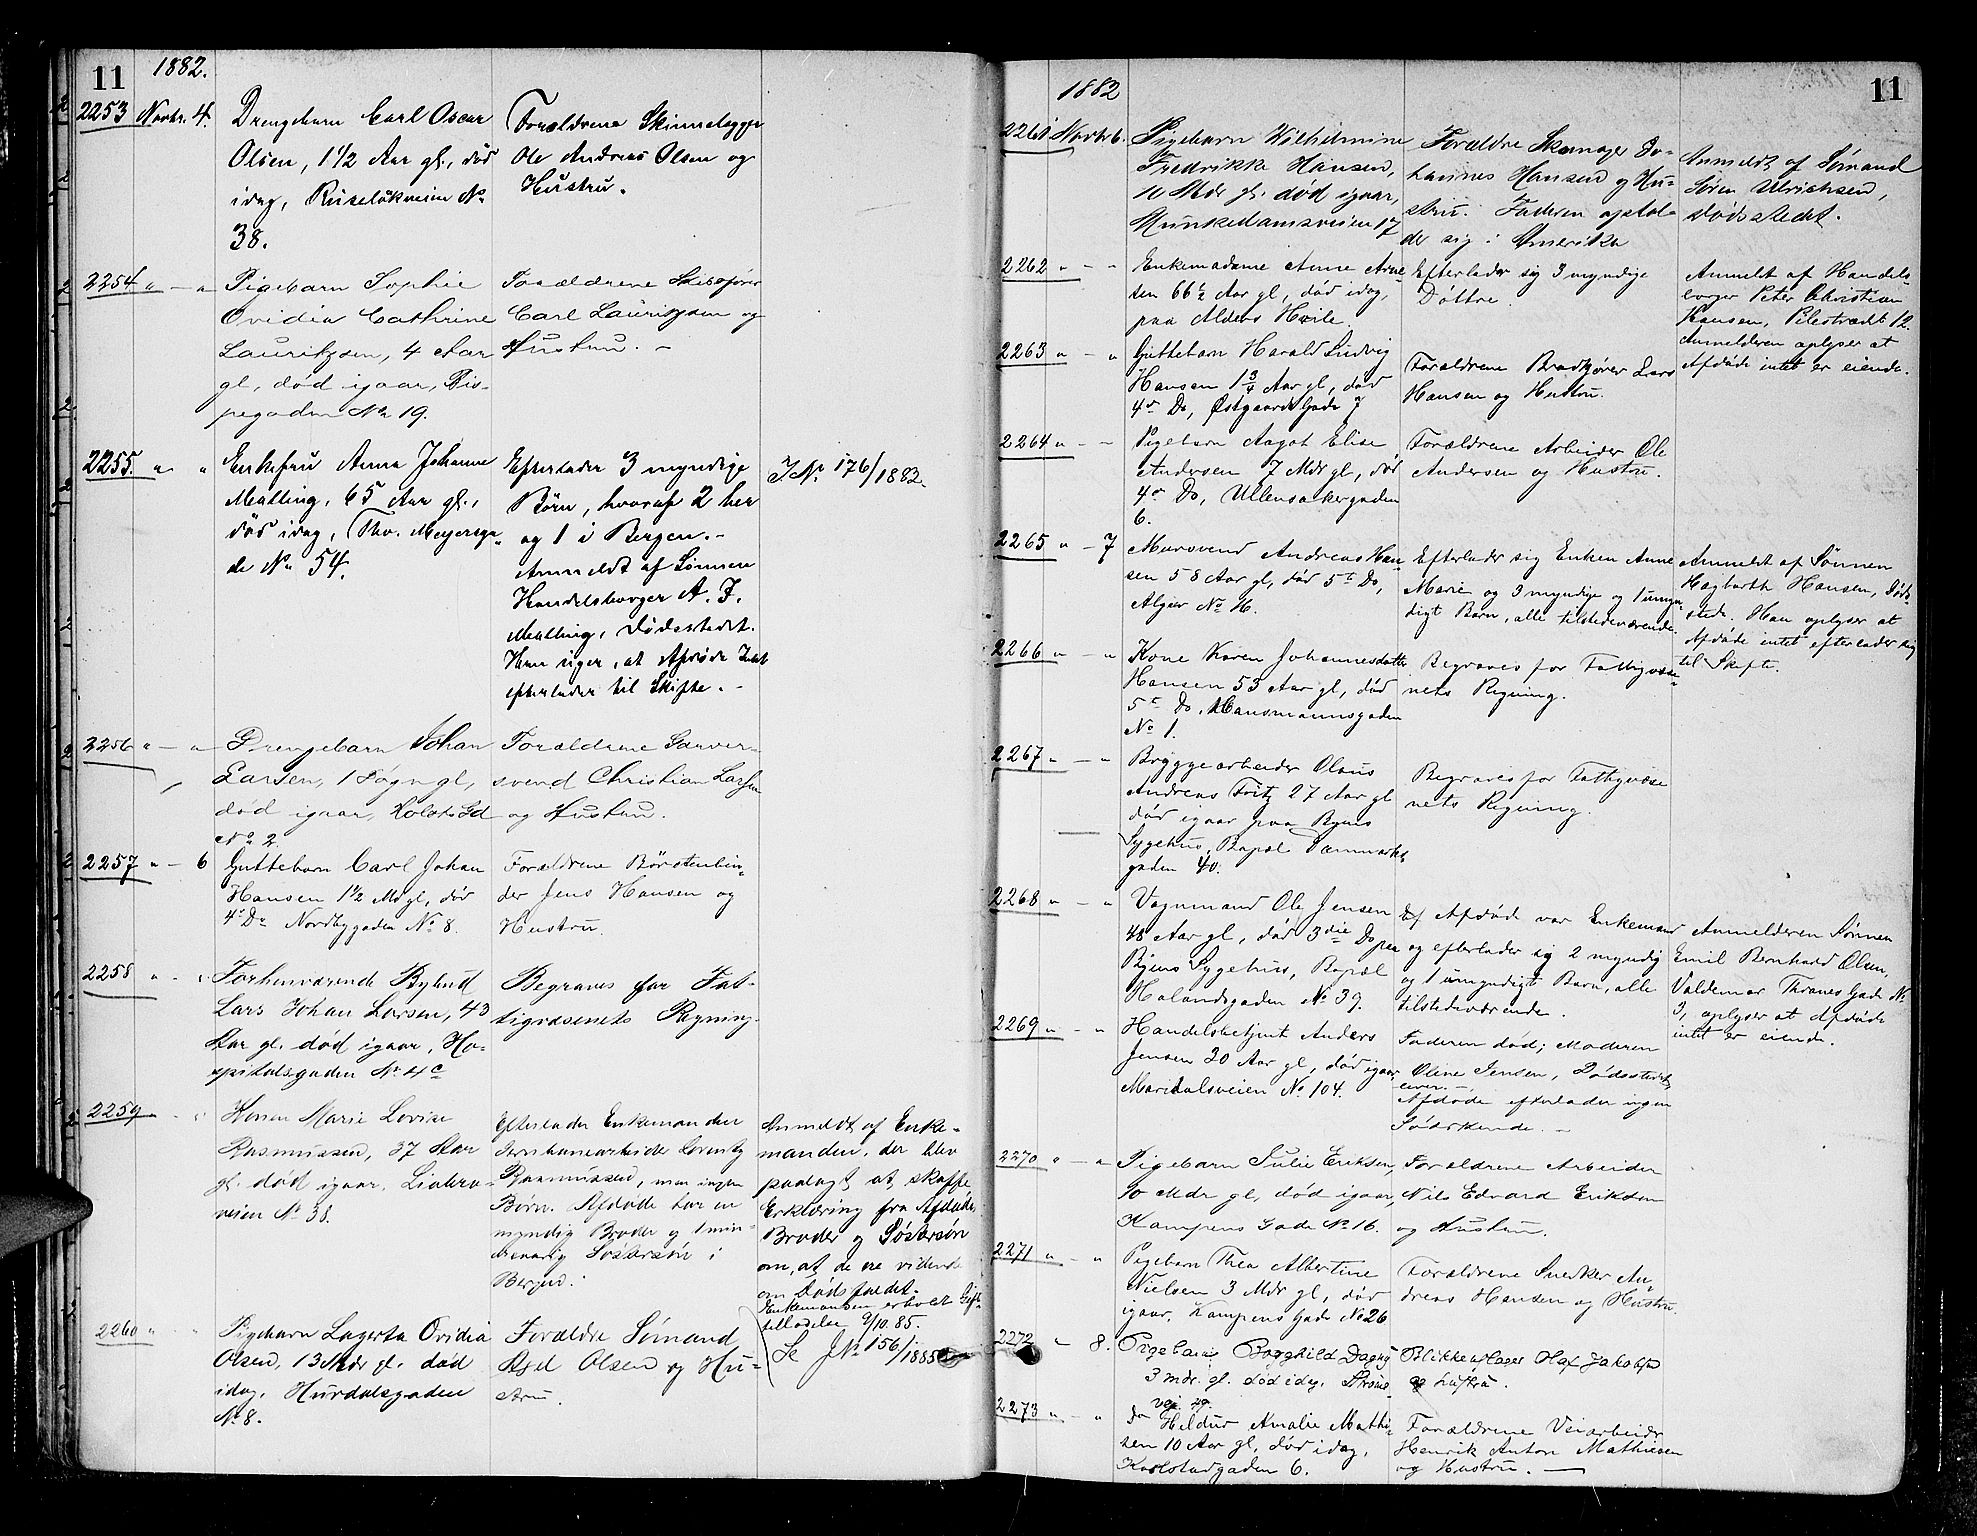 11
1882.
2253 Novbr. 4. Drengebarn Carl Oscar
Olsen, 1 1/2 Aar gl., død
idag, Ruseløkveien No
38.
Forældrene Skinnelægger
Ole Andreas Olsen og
Hustru.
2254 " — " Pigebarn Sophie
Ovidia Cathrine
Lauritzsen, 4 Aar
gl., død igaar, Ris-
pegaden No 19.
Forældrene Skibsfører
Carl Lauritzsen og
Hustru. —
2255. " " Enkefru Anna Johanne
Malling, 65 Aar gl.,
død idag, Thv. Meyersga-
de No 54.
Efterlader 3 myndige
Børn, hvoraf 2 her
og 1 i Bergen. -
Anmeldt af Sønnen
Handelsborger A. F.
Malling, Dødsstedet.
Han siger, at Afdøde Intet
efterlader til Skifte. -
J No 176/1883.
2256 " — " Drengebarn Johan
Larsen, 1 Døgn gl,
død igaar, Holsts Gd
No 2.
Forældrene Garver-
svend Christian Larsen
og Hustru.
2257 " — 6 Guttebarn Carl Johan
Hansen 1 1/2 Md gl, død
4' Do Nordbygaden No 8.
Forældrene Børstenbin-
der Jens Hansen og
Hustru.
2258 " - " Forhenværende Bybud
Lars Johan Larsen, 43
Aar gl. død igaar, Ho-
spitalsgaden No 4 c
Begraves for Fat-
tigvæsenets Regning.
2259 " - " Konen Marie Lovise
Rasmussen, 37 Aar
gl. død igaar, Liabro-
veien No 38.
Efterlader Enkemanden
Jernbanearbeider Lorentz
Rasmussen, men ingen
Børn. Afdøde har en
myndig Broder og 1 min-
dreaarig Søstersøn i
Bergen.
Anmeldt af Enke-
manden, der blev
paalagt at skaffe
Erklæring fra Afdødes
Broder og Søstersøn
om, at de ere vidende
om Dødsfaldet.
Enkemanden erholdt Gifte-
tilladelse 9/10. 85.
Se J No 156/1885
2260 " " Pigebarn Lagerta Ovidia
Olsen, 13 Mdr gl. død
idag, Hurdalsgaden
No 8.
Forældre Sømand
Axel Olsen og Hu-
stru.
11
1882
2261 Novbr 6. Pigebarn Wilhelmine
Fredrikke Hansen,
10 Mdr gl. død igaar,
Munkedamsveien 17
Forældre Skomager Jo-
hannes Hansen og Hu-
stru. Faderen ophol-
der sig i Amerika
Anmeldt af Sømand
Søren Ulrichsen,
Dødsstedet.
2262 " - - Enkemadame Anne Arne-
sen 66 1/2 Aar gl, død idag,
paa Alders Hvile.
Efterlader sig 3 myndige
Døttre.
Anmeldt af Handels-
borger Peter Christian
Hansen, Pilestrædet 12.
Anmelderen oplyser at
Afdøde intet er eiende.
2263 " - " Guttebarn Harald Ludvig
Hansen 1 3/4 Aar gl, død
4de Do, Østgaards Gade 7
Forældrene Brødkjører Lars
Hansen og Hustru.
2264 " - - Pigebarn Aagot Elise
Andersen 7 Mdr gl, død
4de Do, Ullensakergaden
6.
Forældrene Arbeider Ole
Andersen og Hustru.
2265 " - 7 Mursvend Andreas Han-
sen 58 Aar gl, død 5te Do,
Algier No 16.
Efterlader sig Enken Anne
Marie og 3 myndige og 1 umyn-
digt Barn, alle tilstedeværende.
Anmeldt af Sønnen
Hagbarth Hansen, Døds-
stedet. Han oplyser at
Afdøde intet efterlader sig
til Skifte.
2266 " - " Kone Karen Johannesdatter
Hansen 53 Aar gl, død
5te Do, Hausmannsgaden
No 1.
Begraves for Fattigvæse-
nets Regning.
2267 " - " Bryggearbeider Olaus
Andreas Fritz 27 Aar gl
død igaar paa Byens
Sygehus, Bopæl Danmarks
gaden 40.
Begraves for Fattigvæse
nets Regning.
2268 " - " Vognmand Ole Jensen
48 Aar gl, død 3die Do paa
Byens Sygehus, Bopæl
Hølandsgaden No 39.
Afdøde var Enkemand
og efterlader sig 2 myndig
og 1 umyndigt Barn, alle
tilstedeværende.
Anmelderen Sønnen
Emil Bernhard Olsen,
Valdemar Thranes Gade No
3, oplyser at Afdøde
intet er eiende.
2269 " - " Handelsbetjent Anders
Jensen 20 Aar gl, død igaar
Maridalsveien No 104.
Faderen død; Moderen
Oline Jensen, Dødsstedet,
lever. -
Afdøde efterlader ingen
Sødskende. -
2270 " - " Pigebarn Julie Eriksen,
10 Mdr gl, død igaar,
Kampens Gade No 16.
Forældrene Arbeider
Nils Edvard Eriksen
og Hustru.
2271 " " Pigebarn Thea Albertine
Nielsen 3 Mdr gl, død
igaar, Kampens Gade No 26
Forældrene Snedker An-
dreas Hansen og Hustru.
2272 - 8. Pigebarn Borghild Dagny
3 mdr. gl. død idag, Strøms-
vej. 29.
Blikkenslager Jakobsen
og hustru.
2273 " - " do Hildur Amalie Mathi-
sen 10 Aar gl, død idag,
Karlstadgaden 6.
Forældrene Veiarbeider
Henrik Anton Mathiesen
og Hustru. —